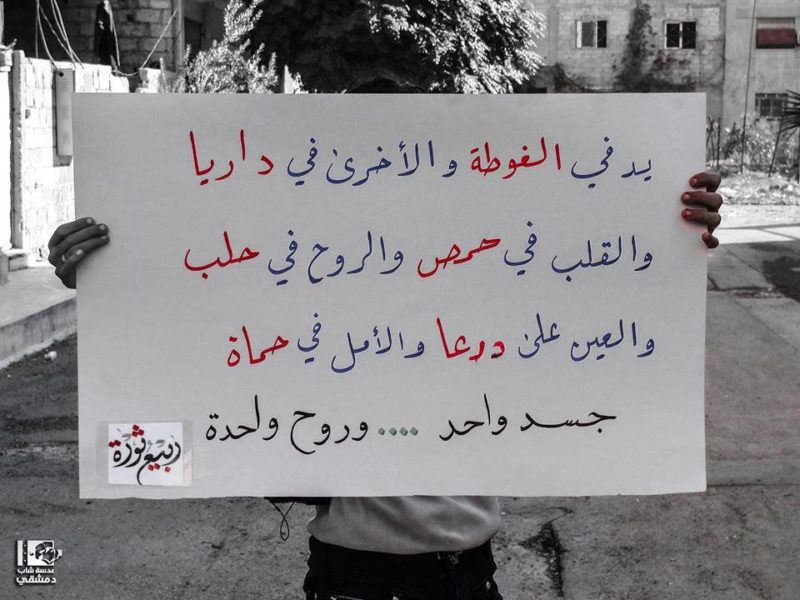 يد في الغوطة والأخرى في داريا
والقلب في حمص والروح في حلب
والعين على درعا والأمل في حماة
جسد واحد .... وروح واحدة
ربيع ثورة
عدسة شاب
دمشقي